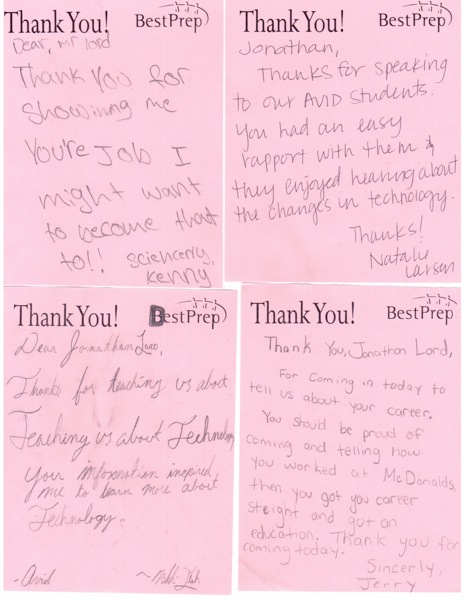 Thank You! BestPrep
Dear, mr lord
Thank You for
showinng me
You're Job I
might want
to become that
to!! sciencerly,
Kenny
Thank You! BestPrep
Jonathan,
Thanks for speaking
to our AVID students.
You had an easy
rapport with them &
they enjoyed hearing about
the changes in technology.
Thanks!
Natalie
Larson
Thank You! BestPrep
Dear Jonathan
Thanks for teaching us about
Teaching us about Technology
Your information inspired
me to learn more about
Technology.
Thank You! BestPrep
Thank You, Jonathon Lord,
For Coming in today to
tell us about your career.
You should be proud of
coming and telling how
you worked at McDonalds,
then you got you career
steight and got an
education. Thank you for
coming today.
Sincerly,
Jerry